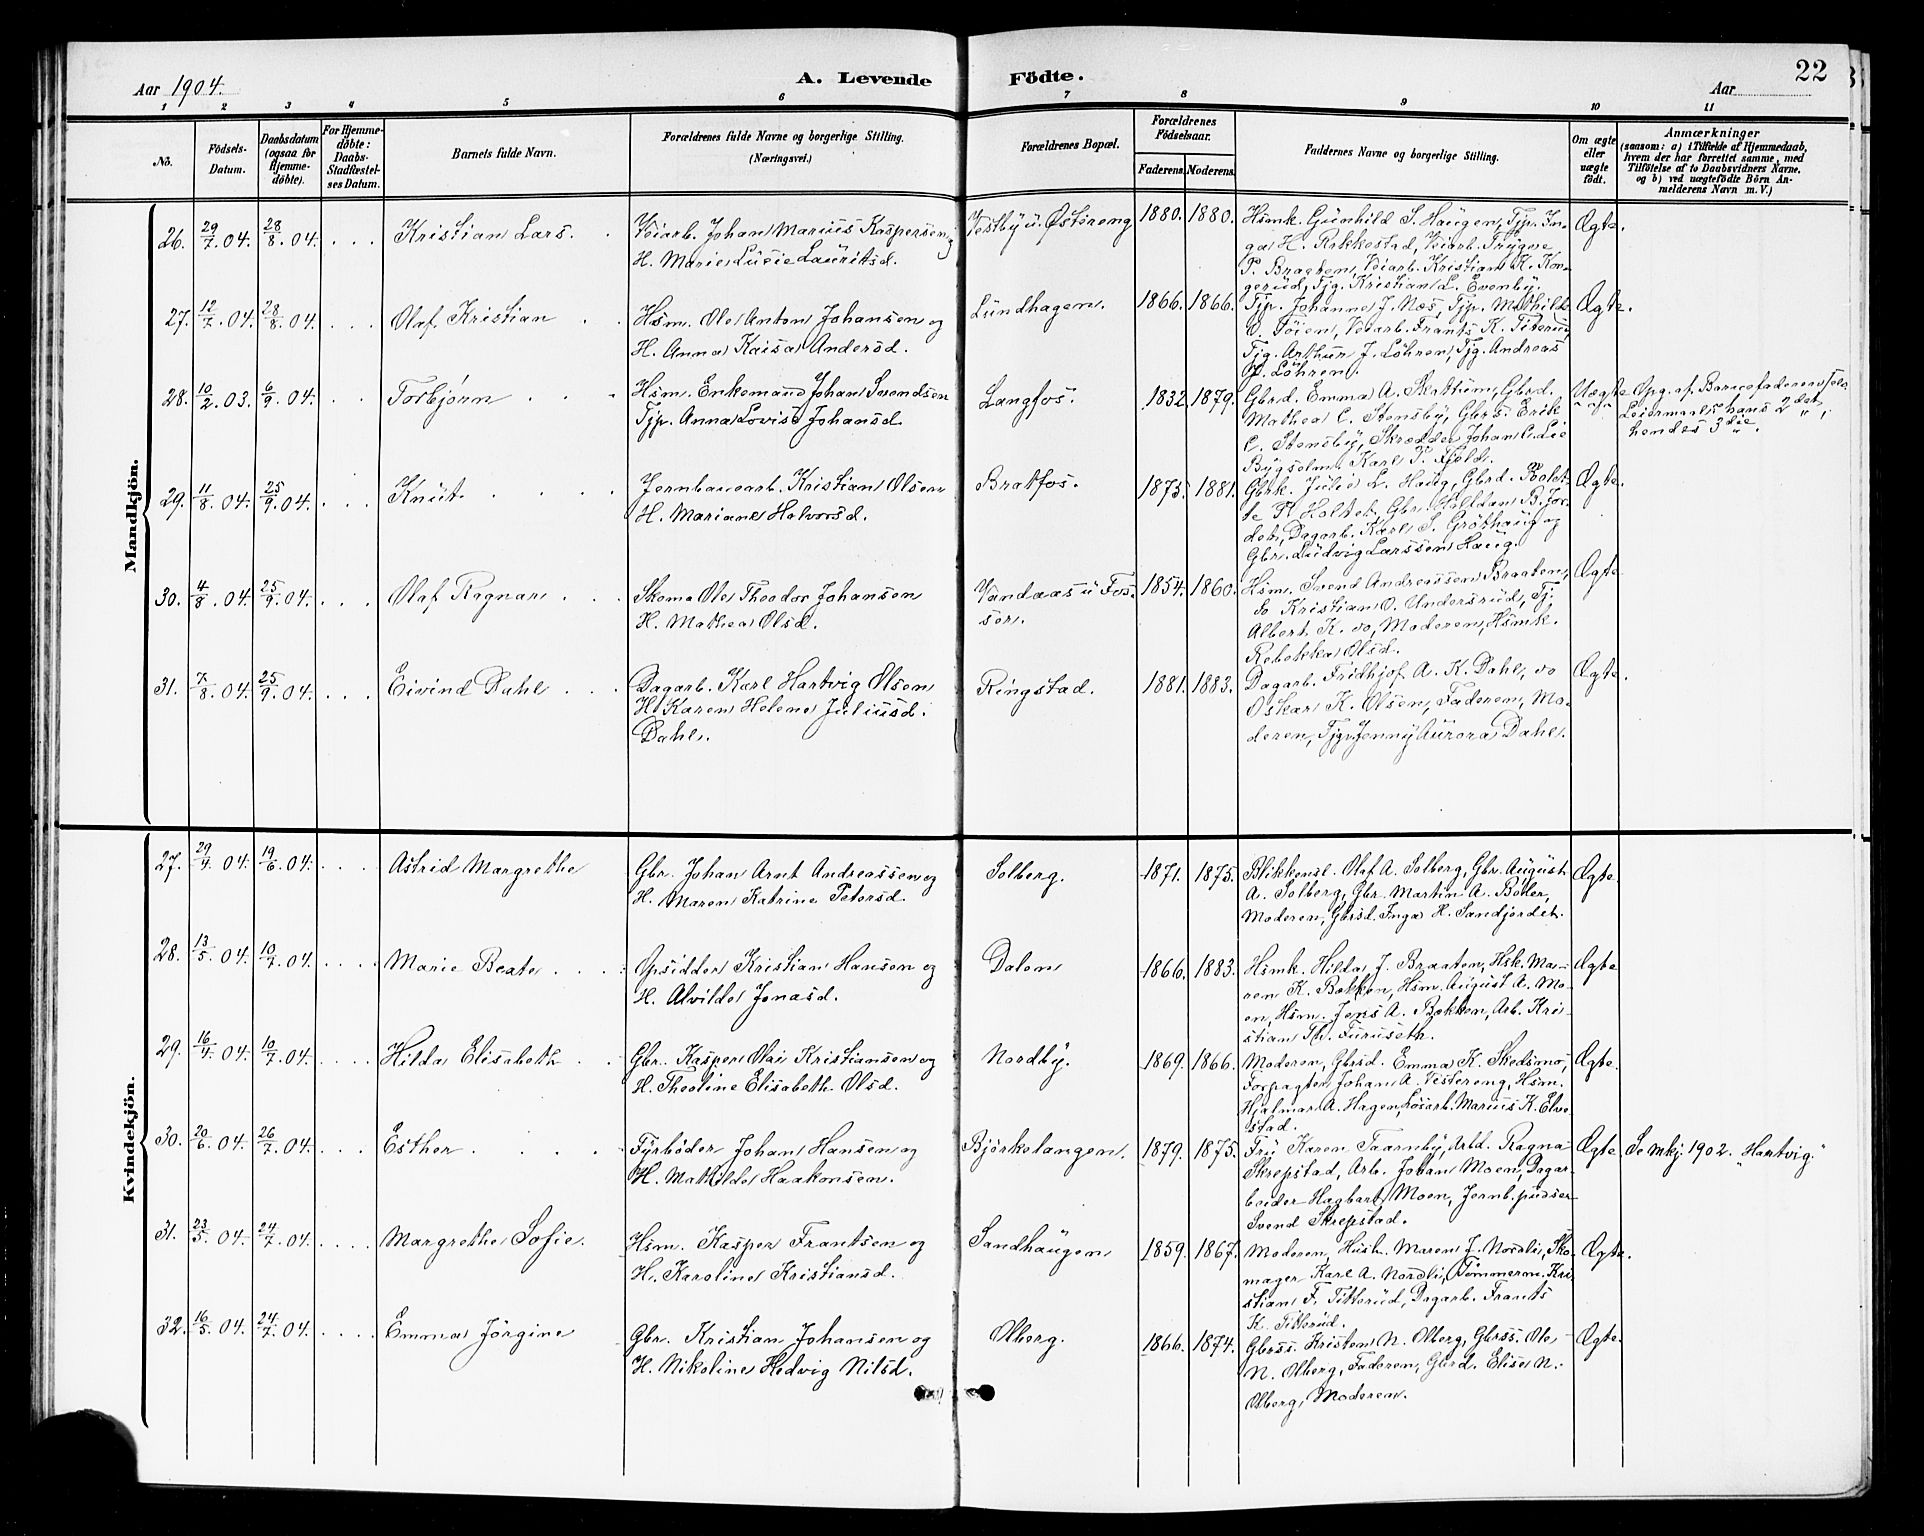 Aar 1904.
A. Levende
Födte.
Aar
22
1 2 3 4 5 6 7 8 9 10 11
No.
Födsels-
Datum.
Daabsdatum
(ogsaa for
Hjemme-
döbte).
For Hjemme-
döbte:
Daabs-
Stadfæstel-
ses Datum.
Barnets fulde Navn.
Forældrenes fulde Navne og borgerlige Stilling.
(Næringsvei.)
Forældrenes Bopæl.
Forældrenes
Födselsaar.
Faderens. Moderens.
Faddernes Navne og borgerlige Stilling.
Om ægte
eller
uægte
födt.
Anmærkninger
(saasom: a) i Tilfælde af Hjemmedaab,
hvem der har forrettet samme, med
Tilföielse af to Daabsvidners Navne,
og b) ved uægtefödte Börn An-
melderens Navn m. V.)
Mandkjön.
26. 29/7.04. 28/8.04. Kristian Lars.
Veiarb. Johan Marius Kaspersen og
H. Marie Lucie Lauritsd.
Vestby u. Østereng
1880. 1880.
Hsmk. Gunhild S. Haugen, Tjp. In-
ga H. Rakkestad, Veiarb. Trygve
P. Braaten, Veiarb. Kristian K. Kon-
gerud, Tjg. Kristian L. Evenby.
Ægte.
27. 12/7.04. 28/8.04. Olaf Kristian
Hsm. Ole Anton Johansen og
H. Anna Kaisa Andersd.
Lundhagen.
1866. 1866.
Tjp. Johanne J. Næs, Tjp. Mathilde
O. Toien, Veiarb. Frants K. Titerud,
Tjg. Arthur J. Løhren, Tjg. Andreas
P. Løhren.
Ægte.
28. 10/2.03. 6/9.04. Torbjørn
Hsm. Enkemand Johan Svendsen
Tjp. Anna Lovise Johansd.
Langfos.
1832. 1879.
Gbrd. Emma A. Skattum, Gbrd.
Mathea C. Stensby, Gbrs. Erik
C. Stensby, Skrædder Johan C. Lie
Bygselm. Karl T. Fjeld.
Uægte
Opg. af Barnefaderen selv
Leiermaal hans 2det,
hendes 3die.
29. 11/8.04. 25/9.04. Knut
Jernbanearb. Kristian Olsen
H. Mariane Halvorsd.
Bratfos.
1875. 1881.
Gbrk. Julie L. Haug, Gbrd. Bolet-
te H. Holtet, Gbr. Halldan B. Jor-
det, Dagarb. Karl S. Grøthaug og
Gbr. Ludvig Larssen Haug.
Ægte.
30. 4/8.04. 25/9.04. Olaf Ragnar
Skoma. Ole Theodor Johansen
H. Mathea Olsd.
Vandaas u Fos-
ser.
1854. 1860.
Hsm. Svend Andreassen Braaten,
do Kristian O. Undersrud, Tj.
Albert K. do, Moderen, Hsmk.
Rebekka Olsd.
Ægte
31. 7/8.04. 25/9.04. Eivind Dahl
Dagarb. Karl Hartvig Olsen
H. Karen Helene Juliusd.
Dahl.
Ringstad.
1881. 1883.
Dagarb. Fridhjof A. K. Dahl, do
Oskar K. Olsen, Faderen, Mo-
deren, Tjp. Jenny Aurora Dahl.
Ægte.
Kvindekjön.
27. 29/4 04. 19/6 04. Astrid Margrethe
Gbr. Johan Arnt Andreassen og
H. Maren Katrine Petersd.
Solberg.
1871. 1875.
Blikkensl. Olaf A. Solberg, Gbr. August
A. Solberg, Gbr. Martin A. Bøler,
Moderen, Gbrsd. Inga H. Sandjordet.
Ægte.
28. 13/5 04. 10/7.04. Marie Beate
Opsidder Kristian Hansen og
H. Alvilde Jonasd.
Dalen
1866. 1883.
Hsmk. Hilda J. Braaten, Hsk. Ma-
ren K. Bækken, Hsm. August A. Mo-
en, Hsm. Jens A. Bækken, Arb. Kri-
stian Th. Furuseth.
Ægte
29. 16/4 04. 10/7.04. Hilda Elisabeth
Gbr. Kasper Olai Kristiansen og
H. Theoline Elisabeth Olsd.
Nordby.
1869. 1866.
Moderen, Gbrsd. Emma K. Skedsmo,
Forpagter Johan A. Vestereng, Hsm.
Hjalmar A. Hagen, Løsarb. Marius K. Elve-
stad.
Ægte.
30. 20/6 04. 26/7.04. Esther
Fyrbøder Johan Hansen og
H. Mathilde Haakonsen.
Bjørkelangen.
1879. 1875.
Fru Karen Taarnby, Arbd. Ragna
Skrepstad, Arb. Johan Moen, Dagar-
beider Hagbart Moen, Jernb. pudser
Svend Skrepstad.
Ægte.
Se mkj. 1902. "Hartvig."
31. 23/5 04. 24/7.04. Margrethe Sofie.
Hsm. Kasper Frantsen og
H. Karoline Kristiansd.
Sandhaugen
1859. 1867.
Moderen, Hush. Maren J. Nordli, Sko-
mager Karl A. Nordli, Tømmerm. Kri-
stian F. Titterud, Dagarb. Frants
K. Titterud.
Ægte.
32. 16/5 04. 24/7.04. Emma Jörgine
Gbr. Kristian Johansen og
H. Nikoline Hedvig Nilsd.
Olberg.
1866. 1874.
Gbrss. Kristen N. Olberg, Gbrss. Ole
N. Olberg, Faderen, Gbrd. Elise N.
Olberg, Moderen.
Ægte.